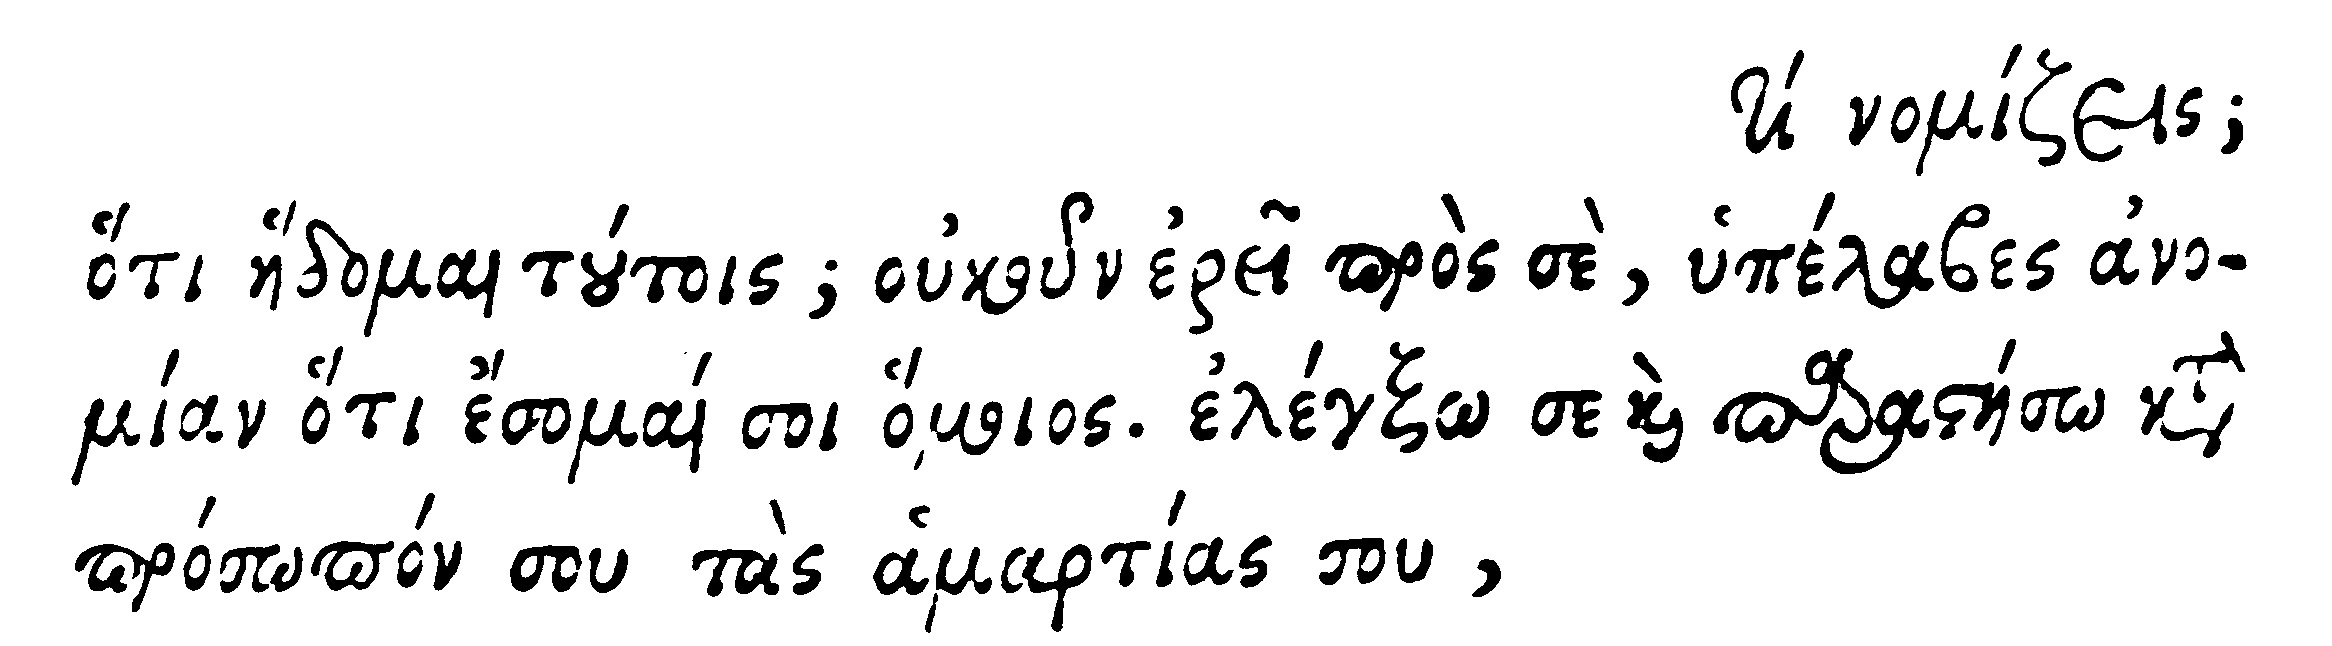 τί νομίζεις;
ὅτι ἥδομαι τούτοις; οὐκοῦν ἐρεῖ πρὸς σὲ, ὑπέλαβες ἀνο-
μίαν ὅτι ἔσομαί σοι ὅμοιος. ἐλέγξω σε καὶ παραστήσω κατὰ
πρόσωπόν σου τὰς ἁμαρτίας σου,